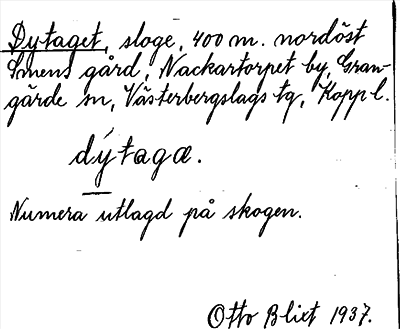 Dytaget, sloge, 400 m. nordöst
Smens gård, Nackartorpet by, Gran-
gärde sn, Västerbergslags tg, Kopp l.
dýtagæ.
Numera utlagd på skogen.
Otto Blixt 1937.